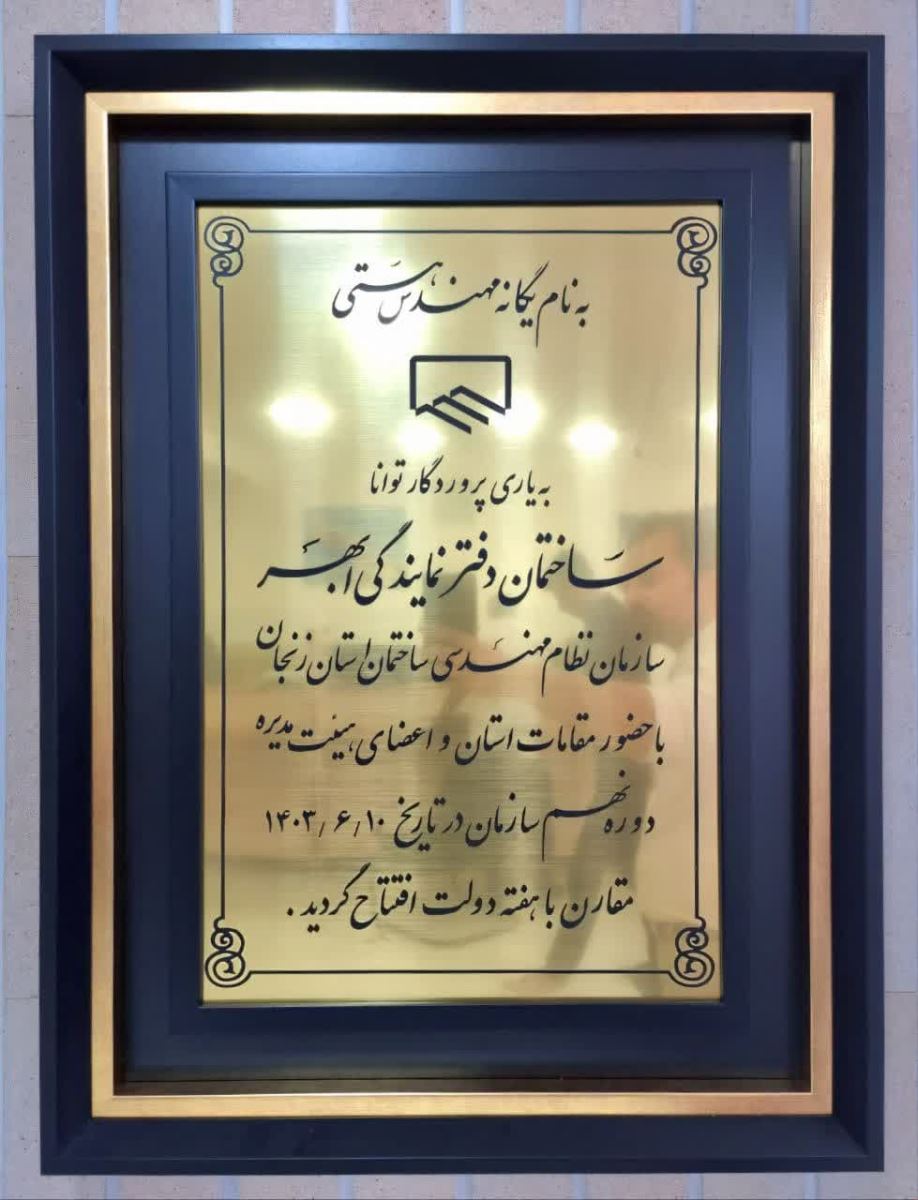 به نام یگانه مهندس هستی
به یاری پروردگار توانا
ساختمان دفتر نمایندگی ابهر
سازمان نظام مهندسی ساختمان استان زنجان
با حضور مقامات استان و اعضای هیئت مدیره
دوره نهم سازمان در تاریخ ۱۴۰۳/۶/۱۰
مقارن با هفته دولت افتتاح گردید .